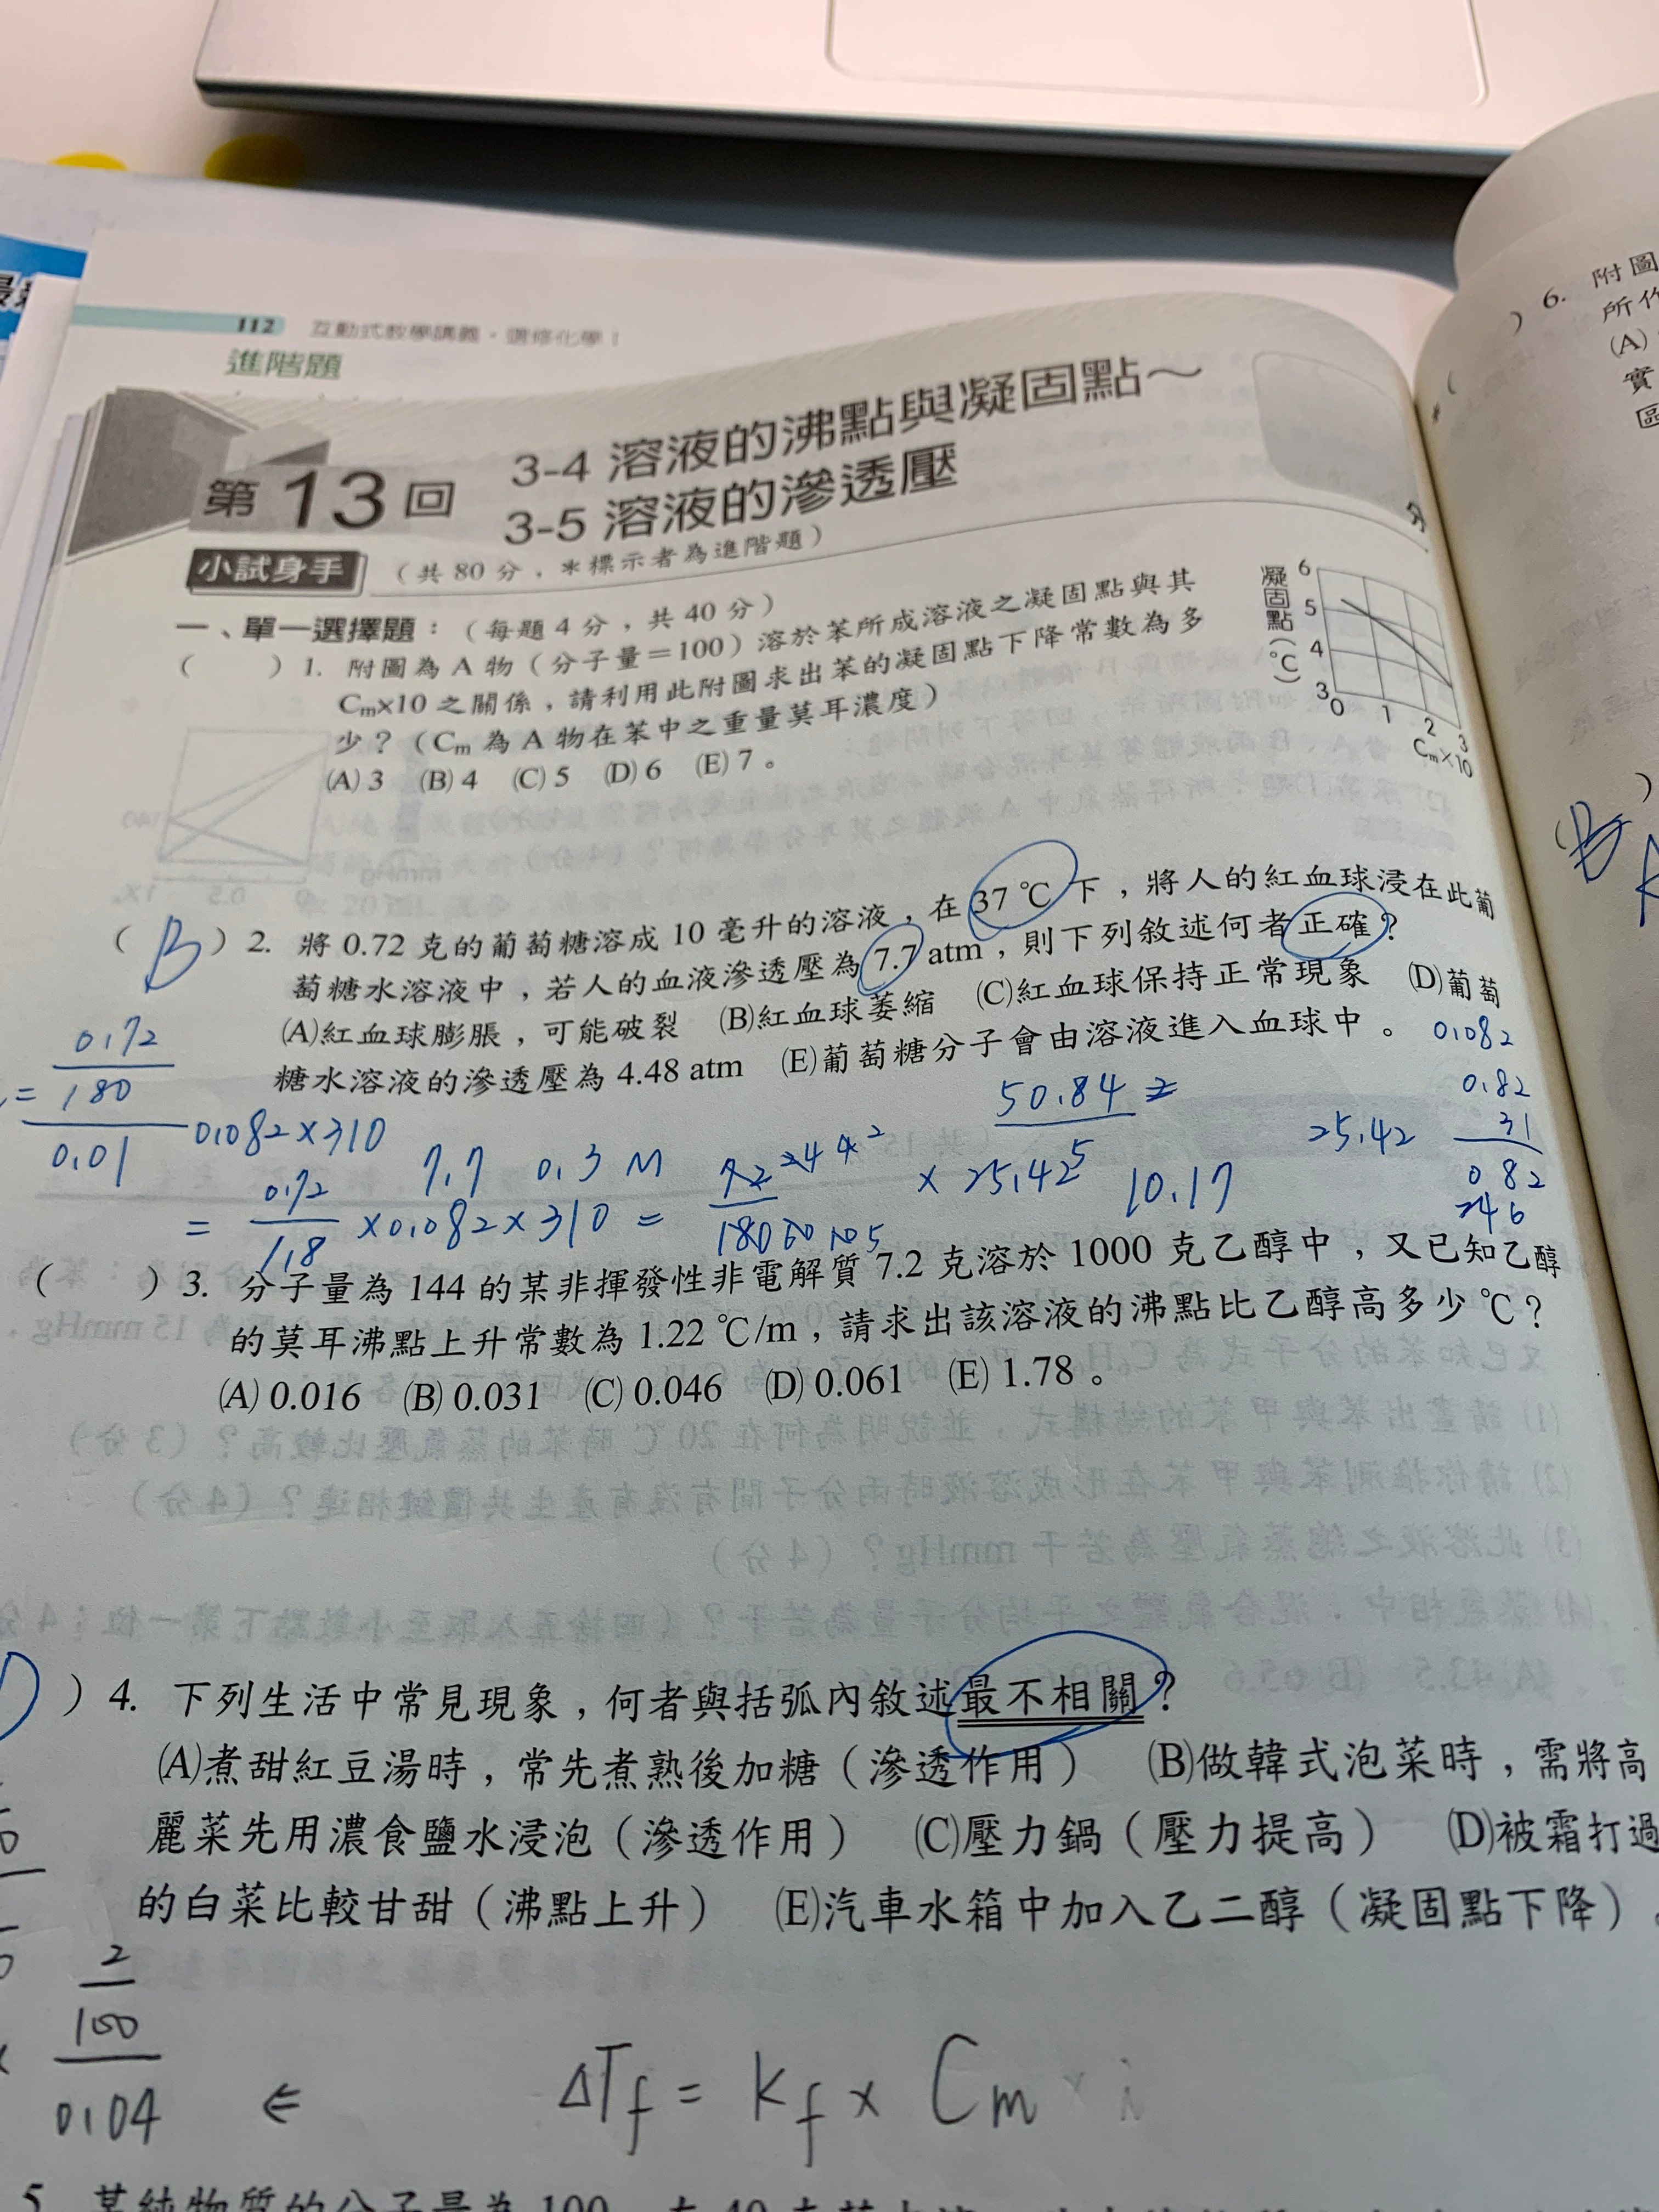 112 互動式教學講義·選修化學 I
進階題
第 13 回
3-4 溶液的沸點與凝固點~
3-5 溶液的滲透壓
分
小試身手 (共 80 分,*標示者為進階題)
一、單一選擇題:(每題 4 分,共 40 分)
( ) 1. 附圖為 A 物(分子量=100)溶於苯所成溶液之凝固點與其
Cm×10 之關係,請利用此附圖求出苯的凝固點下降常數為多
少?(Cm 為 A 物在苯中之重量莫耳濃度)
(A) 3 (B) 4 (C) 5 (D) 6 (E) 7。
凝固點(℃)
6
5
4
3
0 1 2 3
Cm×10
( B ) 2. 將 0.72 克的葡萄糖溶成 10 毫升的溶液,在 37 ℃ 下,將人的紅血球浸在此葡
萄糖水溶液中,若人的血液滲透壓為 7.7 atm,則下列敘述何者正確?
(A)紅血球膨脹,可能破裂 (B)紅血球萎縮 (C)紅血球保持正常現象 (D)葡萄
糖水溶液的滲透壓為 4.48 atm (E)葡萄糖分子會由溶液進入血球中。
0.72
= 180
0.01
0.082×310
7.7 0.3 M
50.84
25.42
0.082
0.82
31
0 82
246
= 0.72 / 1.8 ×0.082×310 =
× 25.42
10.17
( ) 3. 分子量為 144 的某非揮發性非電解質 7.2 克溶於 1000 克乙醇中,又已知乙醇
的莫耳沸點上升常數為 1.22 ℃/m,請求出該溶液的沸點比乙醇高多少 ℃?
(A) 0.016 (B) 0.031 (C) 0.046 (D) 0.061 (E) 1.78。
) 4. 下列生活中常見現象,何者與括弧內敘述最不相關?
(A)煮甜紅豆湯時,常先煮熟後加糖(滲透作用) (B)做韓式泡菜時,需將高
麗菜先用濃食鹽水浸泡(滲透作用) (C)壓力鍋(壓力提高) (D)被霜打過
的白菜比較甘甜(沸點上升) (E)汽車水箱中加入乙二醇(凝固點下降)。
2
100
0.04
⇐ ΔTf = kf × Cm × i
) 6. 附圖
所作
(A)
實
區